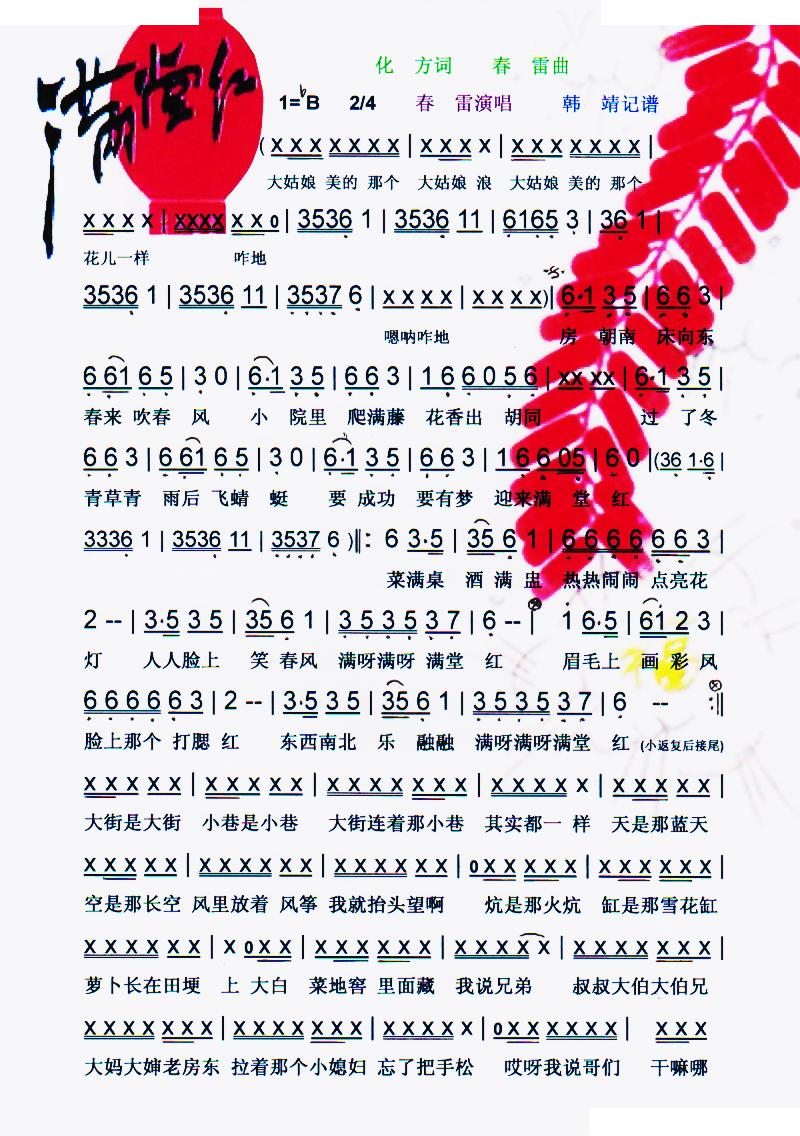 满堂红
化 方词 春 雷曲
1=♭B 2/4 春 雷演唱 韩 靖记谱
(X X X X X X X | X X X X | X X X X X X X |
大姑娘 美的 那个 大姑娘 浪 大姑娘 美的 那个
X X X X | XXXX X X 0 | 3536 1 | 3536 11 | 6165 3 | 36 1 |
花儿一样 咋地
3536 1 | 3536 11 | 3537 6 | X X X X | X X X X) | 6·1 3 5 | 6 6 3 |
嗯呐咋地 房 朝南 床向东
6 61 6 5 | 3 0 | 6·1 3 5 | 6 6 3 | 1 6 6 0 5 6 | XX XX | 6·1 3 5 |
春来 吹春 风 小 院里 爬满藤 花香出 胡同 过 了冬
6 6 3 | 6 61 6 5 | 3 0 | 6·1 3 5 | 6 6 3 | 1 6 6 05 | 6 0 | (36 1·6 |
青草青 雨后 飞蜻 蜓 要 成功 要有梦 迎来满 堂 红
3336 1 | 3536 11 | 3537 6 ) ‖: 6 3·5 | 35 6 1 | 6 6 6 6 6 6 3 |
菜满桌 酒 满 盅 热热闹闹 点亮花
2 -- | 3·5 3 5 | 35 6 1 | 3 5 3 5 3 7 | 6 -- | 1 6·5 | 61 2 3 |
灯 人人脸上 笑 春风 满呀满呀 满堂 红 眉毛上 画 彩 凤
6 6 6 6 6 6 3 | 2 -- | 3·5 3 5 | 35 6 1 | 3 5 3 5 3 7 | 6 -- :‖
脸上那个 打腮 红 东西南北 乐 融融 满呀满呀满堂 红 (小返复后接尾)
X X X X X | X X X X X | X X X X X X X | X X X X X | X X X X X |
大街是大街 小巷是小巷 大街连着那小巷 其实都一 样 天是那蓝天
X X X X X | X X X X X X | X X X X X X | 0 X X X X X | X X X X X X |
空是那长空 风里放着 风筝 我就抬头望啊 炕是那火炕 缸是那雪花缸
X X X X X X | X 0 X X | X X X X X X | X X X X X | X X X X X X X |
萝卜长在田埂 上 大白 菜地窖 里面藏 我说兄弟 叔叔大伯大伯兄
X X X X X X X | X X X X X X X | X X X X X | 0 X X X X X X | X X X
大妈大婶老房东 拉着那个小媳妇 忘了把手松 哎呀我说哥们 干嘛哪